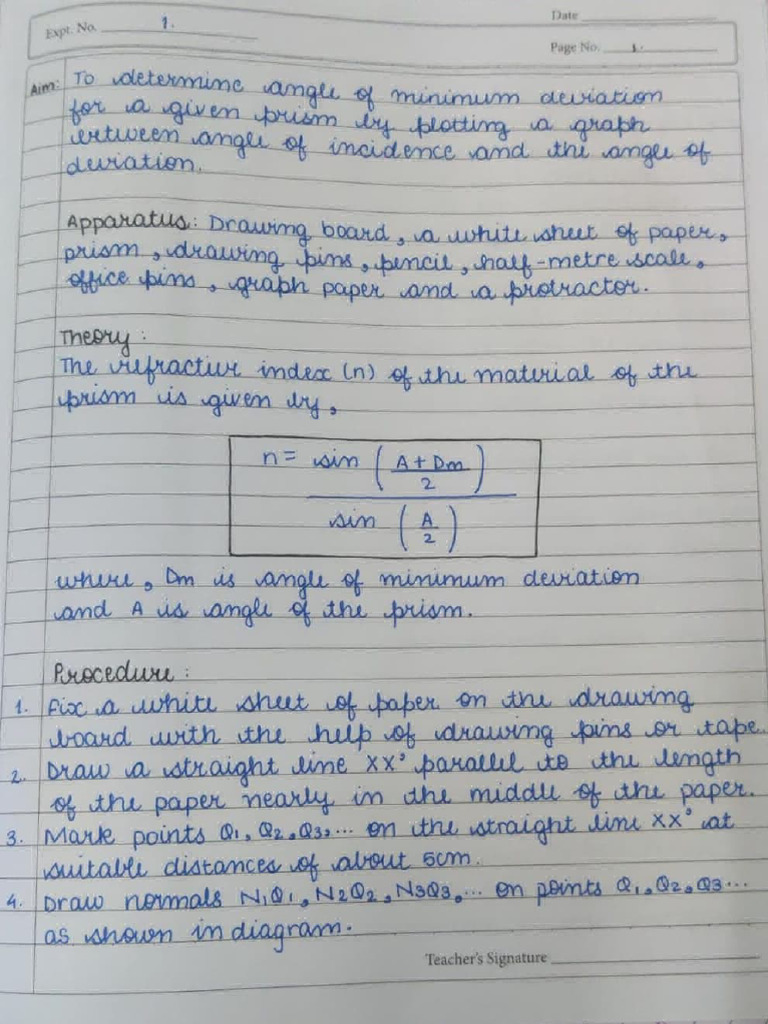 Expt. No. 1.
Date
Page No. 1.
Aim: To determine angle of minimum deviation
for a given prism by plotting a graph
between angle of incidence and the angle of
deviation.
Apparatus: Drawing board, a white sheet of paper,
prism, drawing pins, pencil, half-metre scale,
office pins, graph paper and a protractor.
Theory:
The refractive index (n) of the material of the
prism is given by,
n = sin (A + Dm / 2)
sin (A / 2)
where, Dm is angle of minimum deviation
and A is angle of the prism.
Procedure:
1. Fix a white sheet of paper on the drawing
board with the help of drawing pins or tape.
2. Draw a straight line XX' parallel to the length
of the paper nearly in the middle of the paper.
3. Mark points Q1, Q2, Q3,... on the straight line XX' at
suitable distances of about 5cm.
4. Draw normals N1Q1, N2Q2, N3Q3,... on points Q1, Q2, Q3...
as shown in diagram.
Teacher's Signature